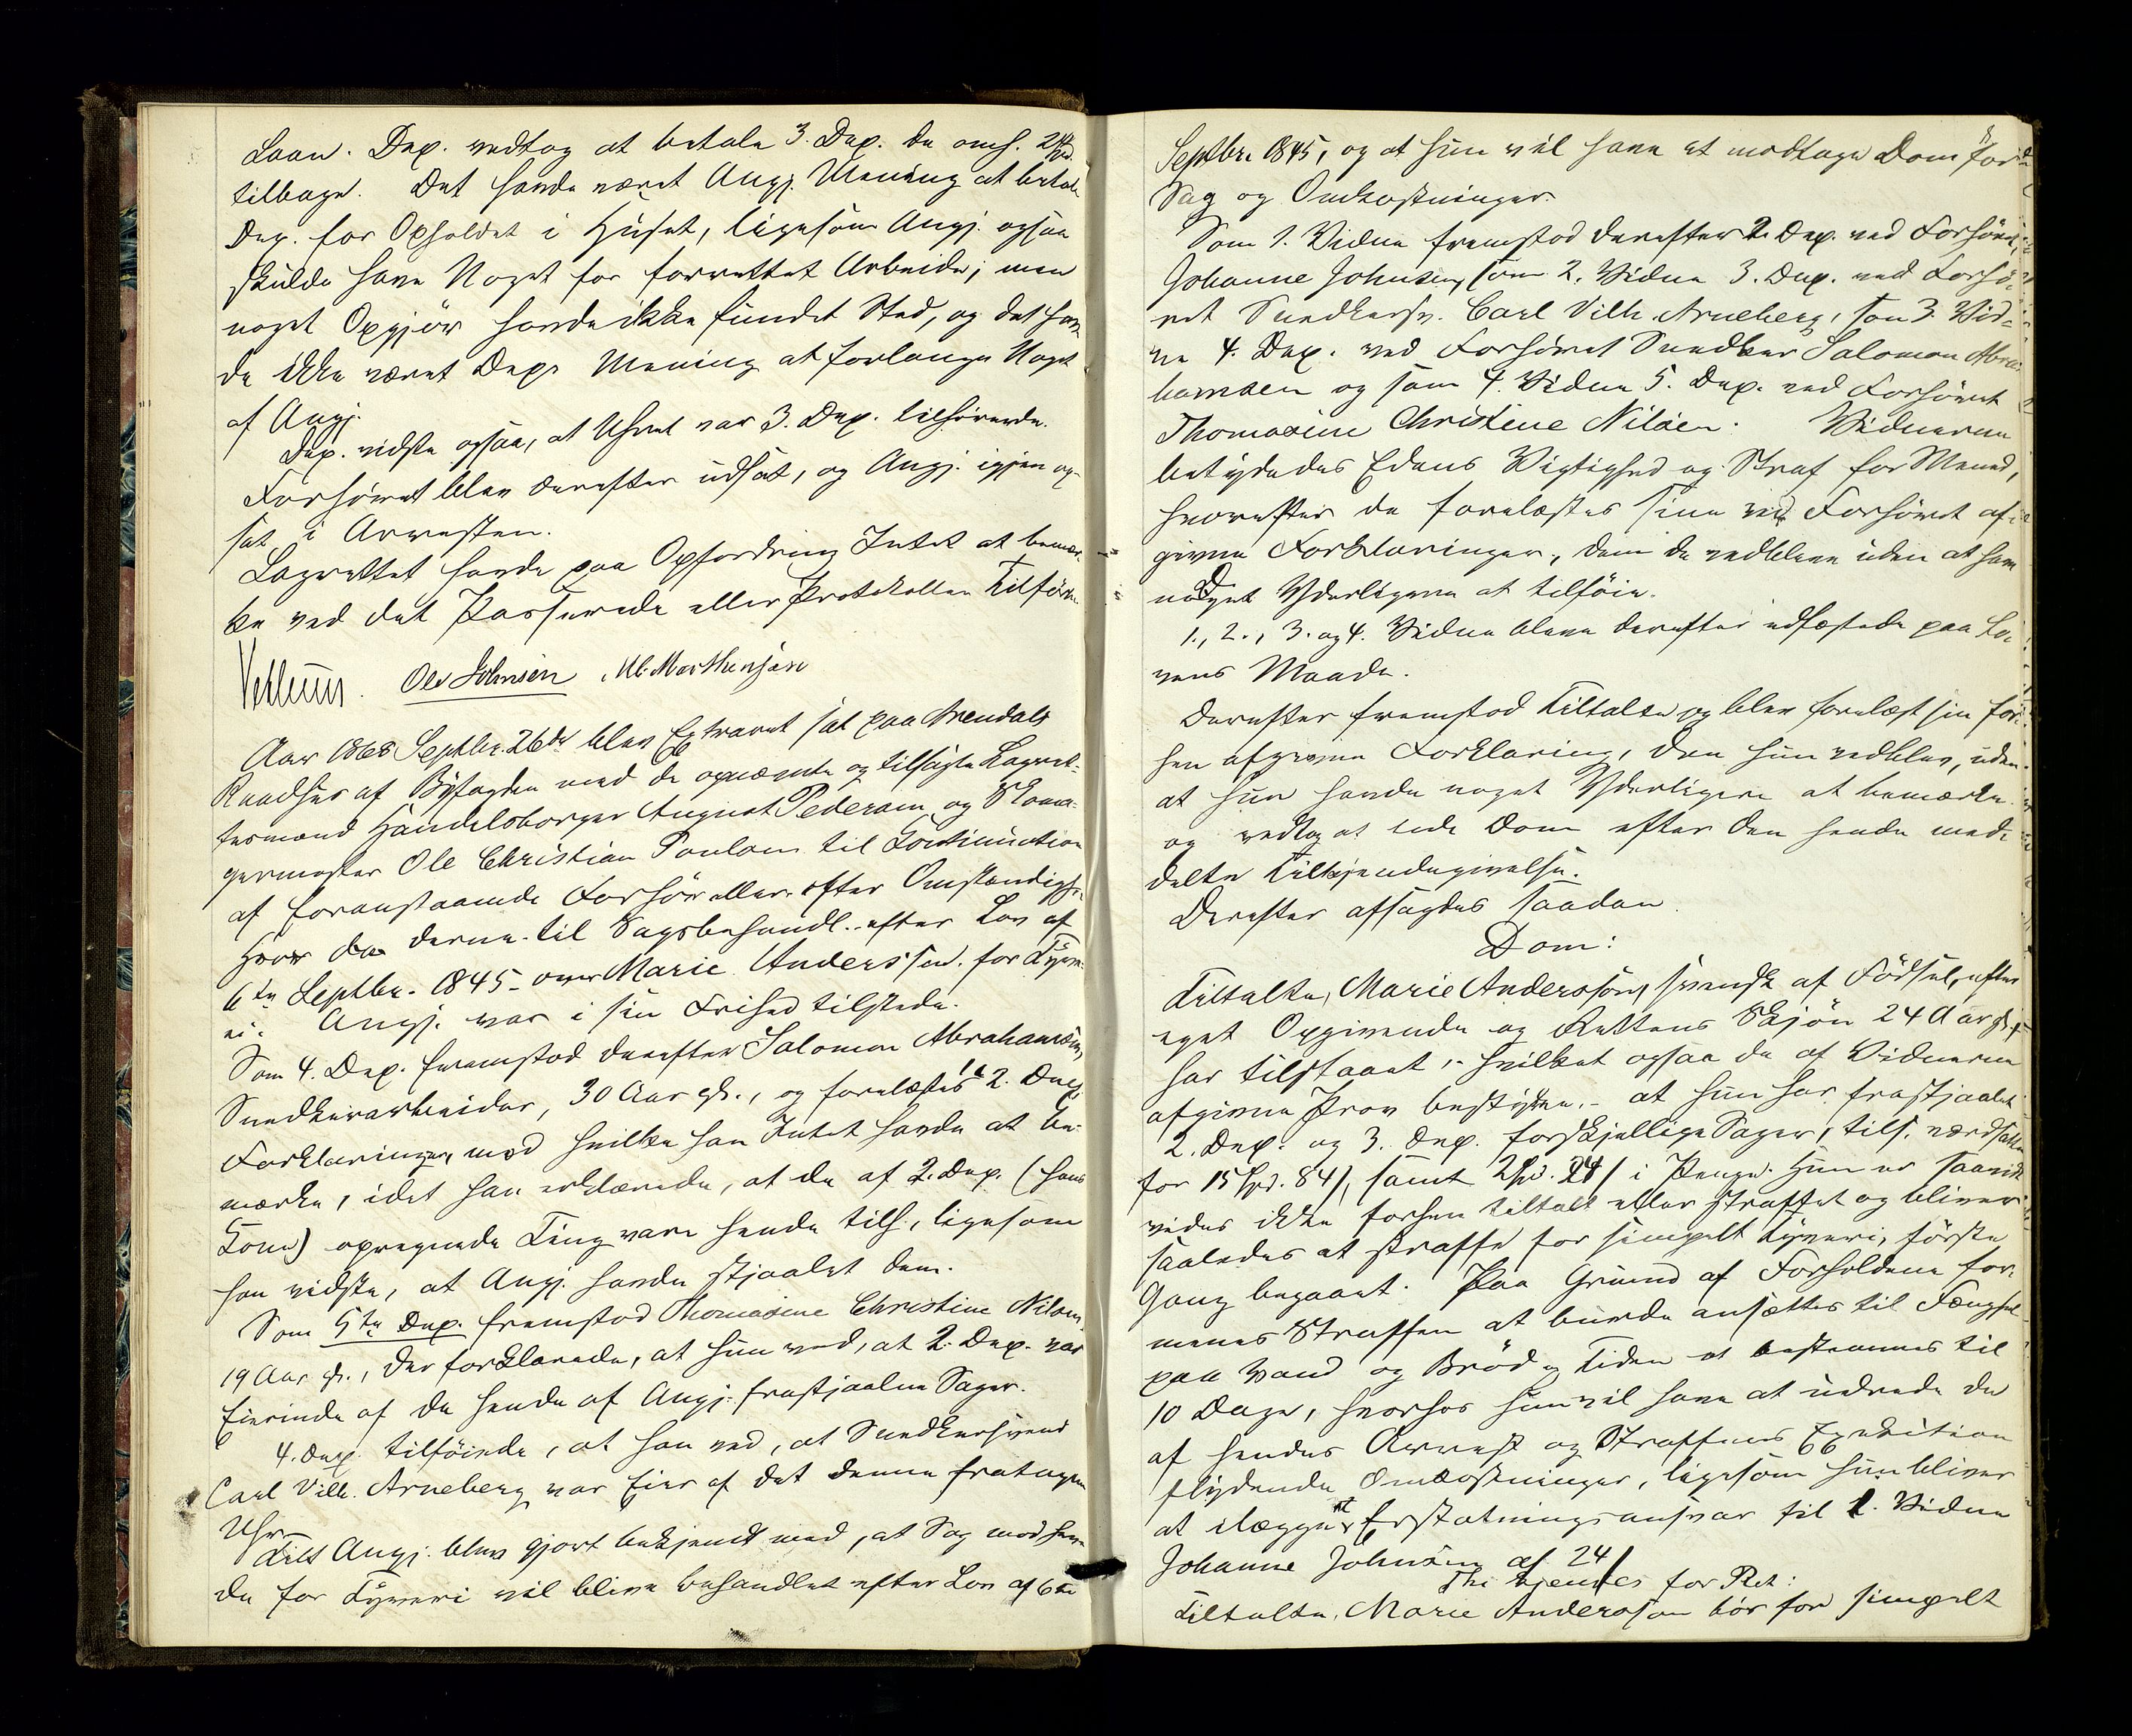 Laan. Dep. vedtog at betale 3. Dep. de omh. 2 Spd.
tilbage. Det havde været Angj. Mening at betale
Dep. for Opholdet i Huset, ligesom Angj. ogsaa
skulde have Noget for forrettet Arbeide; men
noget Opgjør havde ikke fundet Sted, og det hav
de ikke været Deps Mening at forlange Noget
af Angj.
Dep. vidste ogsaa, at Uhret var 3. Dep. tilhørende.
Forhøret blev derefter udsat, og Angj. igjen op-
sat i Arresten.
Lagrettet havde paa Opfordring Intet at bemær-
ke ved det Passerede eller Protokollen Tilførte.
Ole Johnsen M. Marthinsen
Aar 1868 Septbr. 26de blev Extraret sat paa Arendals
Raadhus af Byfogden med de opnævnte og tilsagte Lagret-
tesmænd Handelsborger August Pedersen og Skoma-
germester Ole Christian Paulsen til Kontinuation
af foranstaaende Forhør eller efter Omstændighe-
derne til Sagsbehandl. efter Lov af
6te Septbr. 1845 over Marie Anderssen for Tyve-
ri. Angj. var i sin Frihed tilstede.
Som 4. Dep. fremstod derefter Salomon Abrahamsen,
Snedkerarbeider, 30 Aar gl., og forelæstes 2. Deps
Forklaringer, mod hvilke han Intet havde at be-
mærke, idet han erklærede, at de af 2. Dep. (hans
Kone) opregnede Ting vare hende tilh., ligesom
han vidste, at Angj. havde stjaalet dem.
Som 5te Dep. fremstod Thomasine Christine Nilsen,
19 Aar gl., der forklarede, at hun ved, at 2. Dep. var
Eierinde af de hende af Angj. frastjaalne Sager.
4. Dep. tilføiede, at han ved, at Snedkersvend
Carl Vilh. Arneberg var Eier af det denne fratagne
Uhr.
Angj. blev gjort bekjendt med, at Sag mod hen-
de for Tyveri vil blive behandlet efter Lov af 6te
Septbr. 1845, og at hun vil have at modtage Dom for
Sag og Omkostninger.
Som 1. Vidne fremstod derefter 2. Dep. ved Forhøret,
Johanne Johnsen, som 2. Vidne 3. Dep. ved Forhø-
ret Snedkersv. Carl Vilh. Arneberg, som 3. Vid-
ne 4. Dep. ved Forhøret Snedker Salomon Abra-
hamsen og som 4. Vidne 5. Dep. ved Forhøret
Thomasine Christine Nilsen. Vidnerne
betydedes Edens Vigtighed og Straf for Meened,
hvorefter de forelæstes sine ved Forhøret af-
givne Forklaringer, dem de vedbleve uden at have
noget Yderligere at tilføie.
1., 2., 3. og 4. Vidne bleve derefter edfæstede paa Lo-
vens Maade.
Derefter fremstod Tiltalte og blev forelæst sin for-
hen afgivne Forklaring, den hun vedblev, uden
at hun havde noget Yderligere at bemærke
og vedtog at lide Dom efter den hende med-
delte Tilkjendegivelse.
Derefter afsagdes saadan
Dom:
Tiltalte, Marie Andersson, svensk af Fødsel, efter
eget Opgivende og Rettens Skjøn 24 Aar gl.,
har tilstaaet, - hvilket ogsaa de af Vidnerne
afgivne Prov bestyrke, - at hun har frastjaalet
2. Dep. og 3. Dep. forskjellige Sager, tils. værdsatte
for 15 Spd. 84 ß, samt 2 Spd. 24 ß i Penge. Hun er saavidt
vides ikke forhen tiltalt eller straffet og bliver
saaledes at straffe for simpelt Tyveri, første
Gang begaaet. Paa Grund af Forholdene for-
menes Straffen at burde ansættes til Fængsel
paa Vand og Brød og Tiden at bestemmes til
10 Dage, hvorhos hun vil have at udrede de
af hendes Arrest og Straffens Exekution
flydende Omkostninger, ligesom hun bliver
at ilægges Erstatningsansvar til 1. Vidne
Johanne Johnsen af 24 ß
Thi kjendes for Ret:
Tiltalte, Marie Andersson bør for simpelt